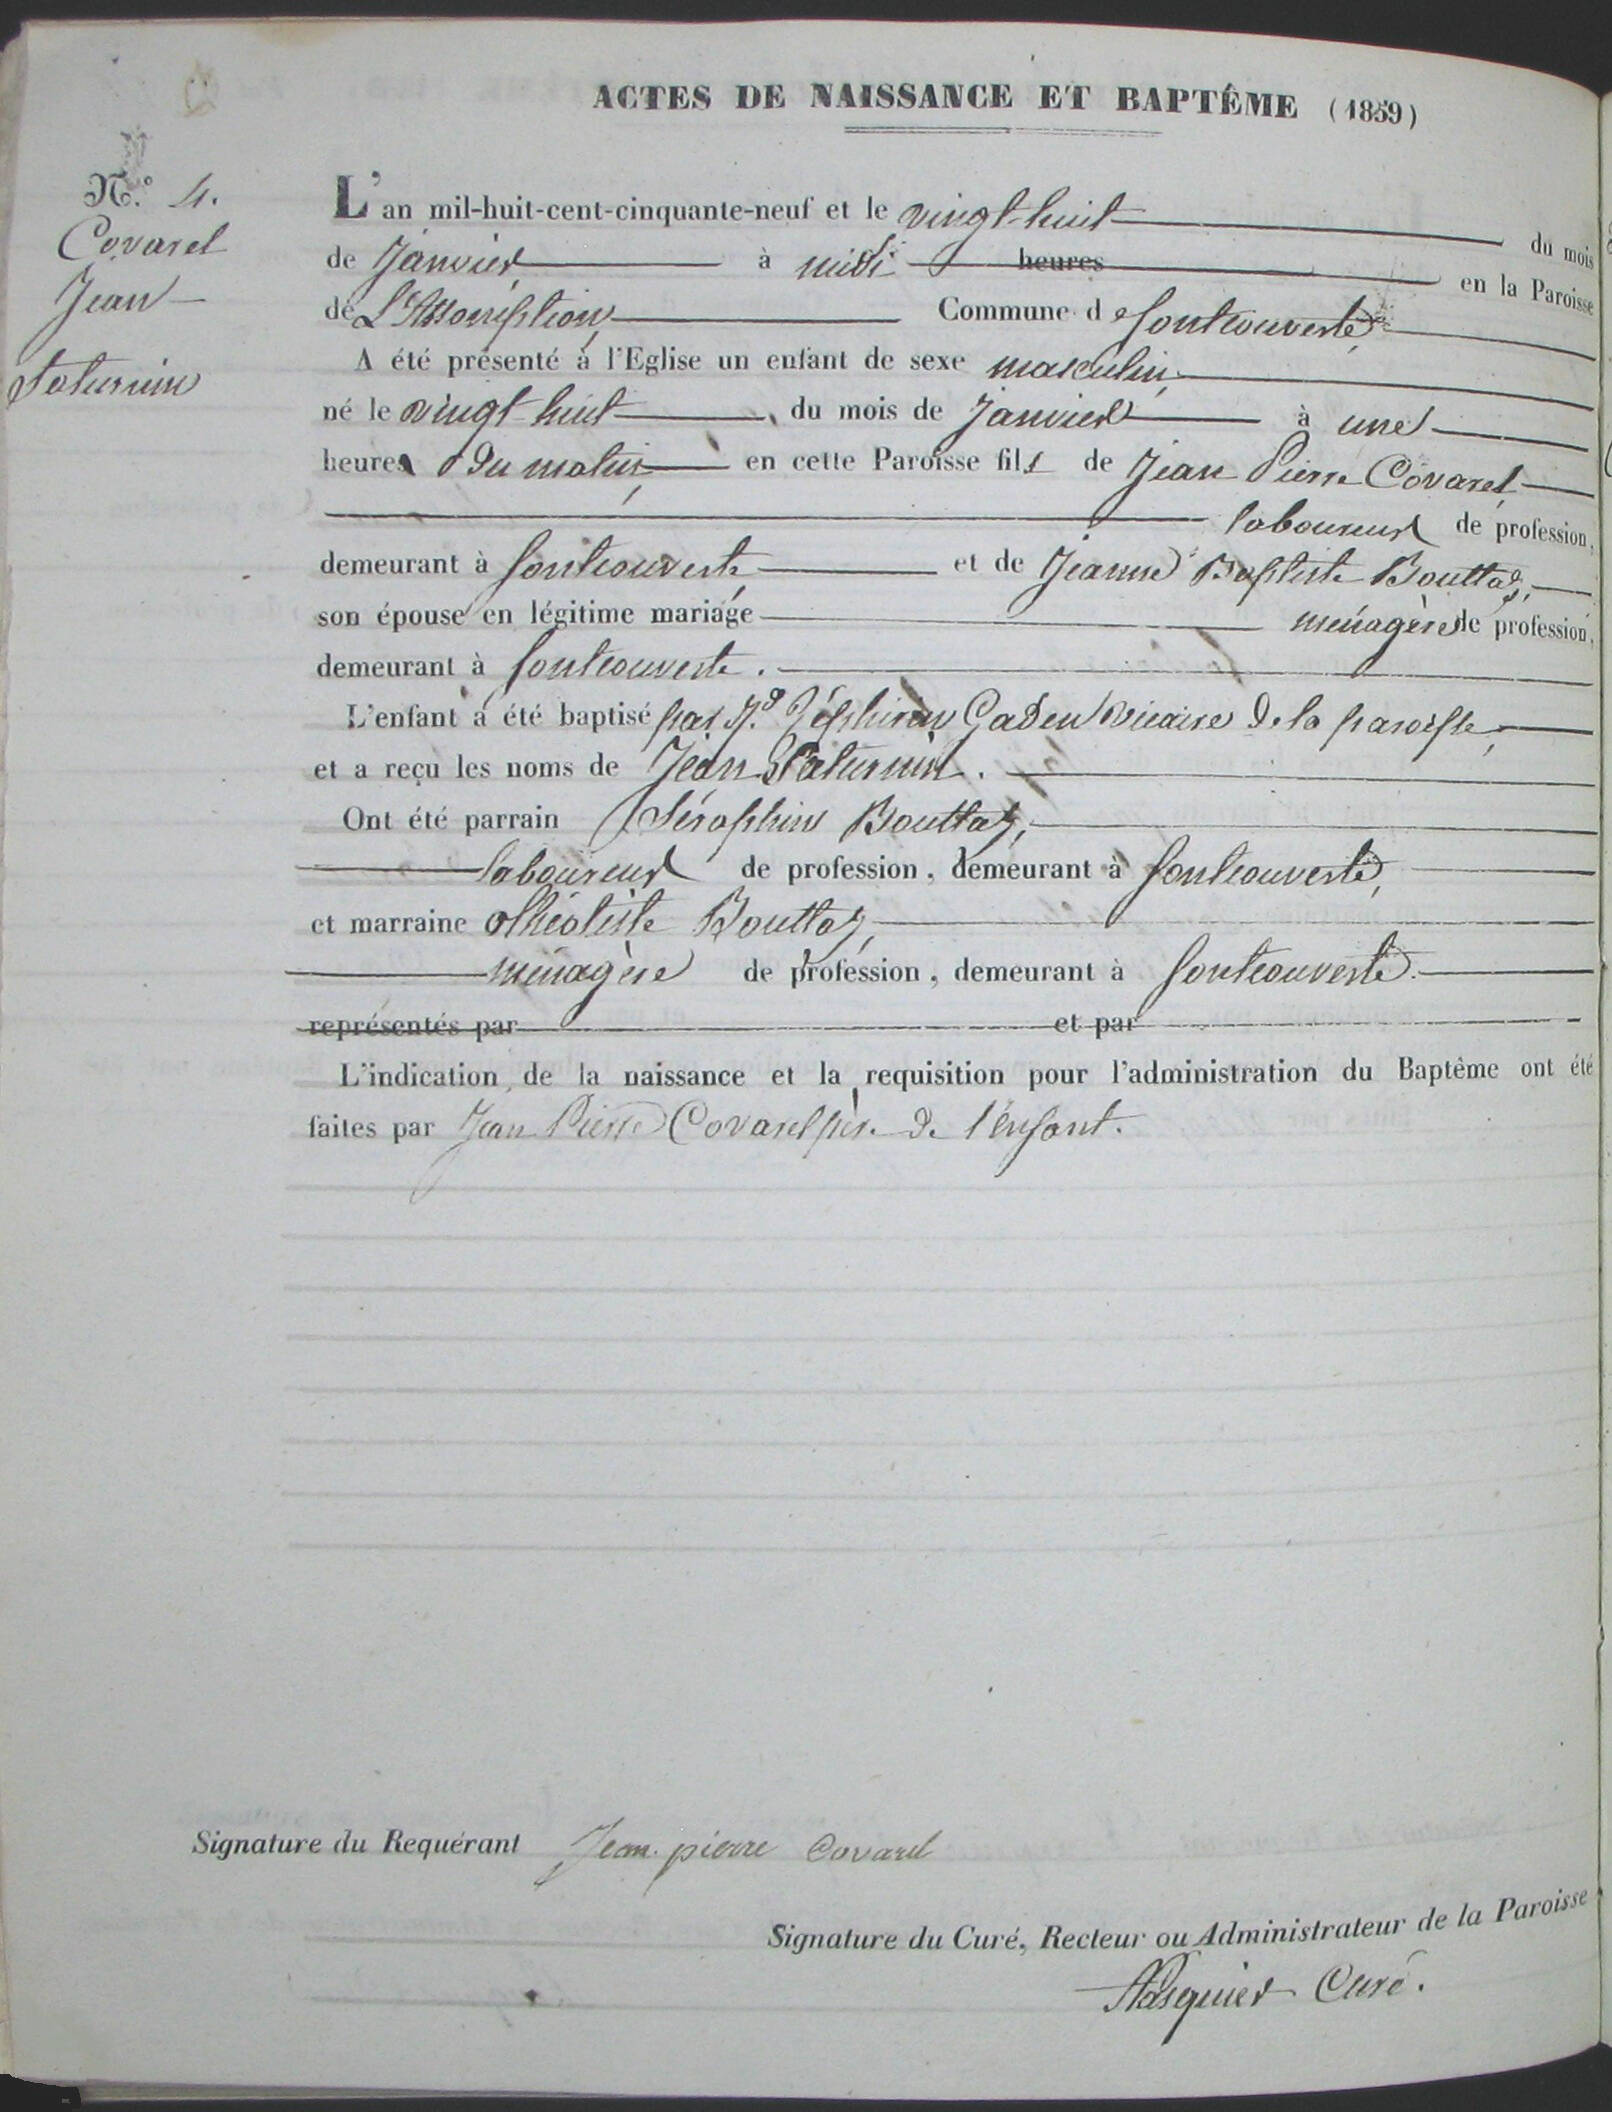 ACTES DE NAISSANCE ET BAPTÊME (1859)
N.° 4.
Covarel
Jean
Saturnin
L'an mil-huit-cent-cinquante-neuf et le vingt-huit du mois
de Janvier à midi heures en la Paroisse
de L'Assomption Commune de fontcouverte
A été présenté à l'Eglise un enfant de sexe masculin,
né le vingt-huit du mois de Janvier à une
heure du matin, en cette Paroisse fils de Jean Pierre Covarel
laboureur de profession,
demeurant à fontcouverte, et de Jeanne Baptiste Bouttaz,
son épouse en légitime mariage ménagère de profession,
demeurant à fontcouverte.
L'enfant a été baptisé par R.d Zéphirin Gaden vicaire de la paroisse,
et a reçu les noms de Jean Saturnin.
Ont été parrain Séraphin Bouttaz,
laboureur de profession, demeurant à fontcouverte,
et marraine Théotiste Bouttaz,
ménagère de profession, demeurant à fontcouverte.
représentés par et par
L'indication de la naissance et la requisition pour l'administration du Baptême ont été
faites par Jean Pierre Covarel père de l'enfant.
Signature du Requérant Jean pierre Covarel
Signature du Curé, Recteur ou Administrateur de la Paroisse
Pasquier Curé.